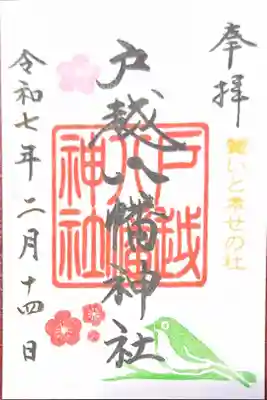 奉拝
幸せの社
戸越八幡神社
戸越
八幡
神社
令和七年二月十四日